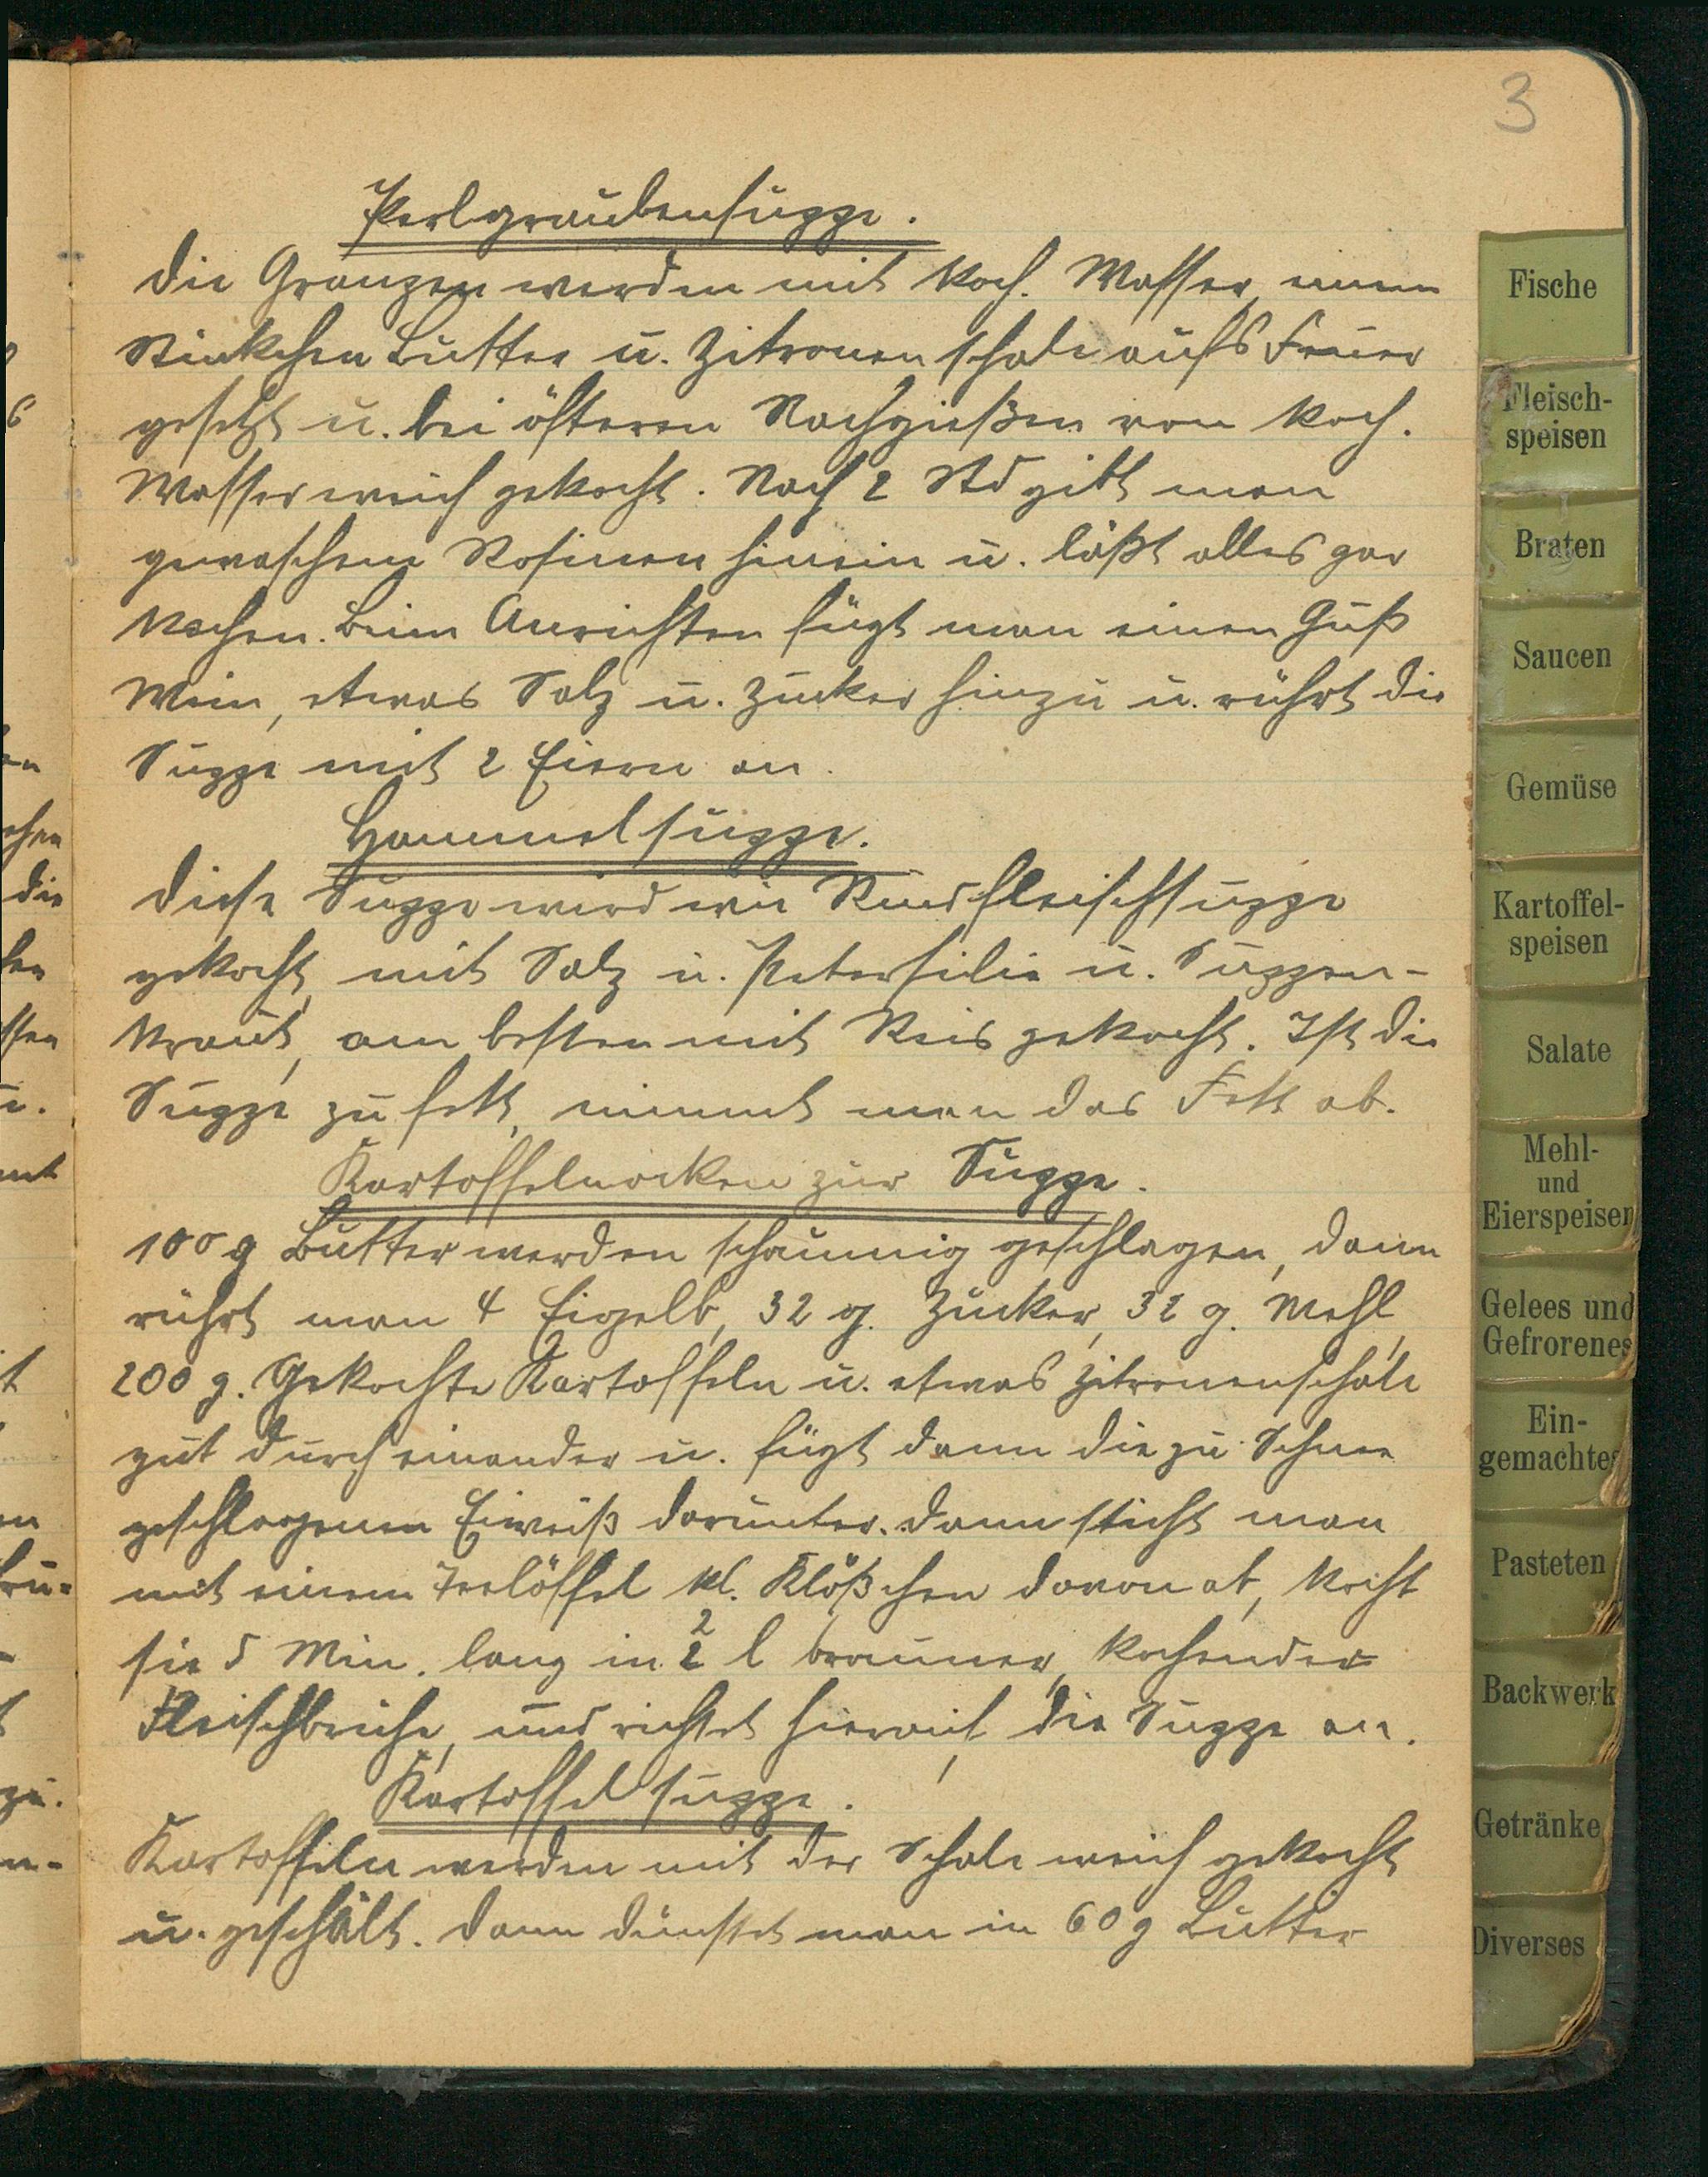 3
Perlgraubensuppe.
Die Graupen werden mit koch. Wasser, einem
Stückchen Butter u. Zitronenschale aufs Feuer
gesetzt u. bei öfteren Nachgießen von koch.
Wasser weich gekocht. Nach 2 Std gibt man
gewaschene Rosinen hinein u. läßt alles gar
kochen. Beim Anrichten fügt man einen Guß
Wein, etwas Salz u. Zucker hinzu u. rührt die
Suppe mit 2 Eiern an.
Hammelsuppe.
Diese Suppe wird wie Rindfleischsuppe
gekocht, mit Salz u. Petersilie u. Suppen-
kraut, am besten mit Reis gekocht. Ist die
Suppe zu fett, nimmt man das Fett ab.
Kartoffelnocken zur Suppe.
100 g Butter werden schaumig geschlagen, dann
rührt man 4 Eigelb, 32 g. Zucker, 32 g. Mehl,
200 g. Gekochte Kartoffeln u. etwas Zitronenschale
gut durcheinander u. fügt dann die zu Schnee
geschlagenen Eiweiß darunter. Dann sticht man
mit einem Teelöffel kl. Klößchen davon ab, kocht
sie 5 Min. lang in 2 l brauner, kochender
Fleischbrühe, und richtet hierauf, die Suppe an.
Kartoffelsuppe.
Kartoffeln werden mit der Schale weich gekocht
u. geschält. Dann dünstet man in 60 g Butter
Fische
Fleisch-
speisen
Braten
Saucen
Gemüse
Kartoffel-
speisen
Salate
Mehl-
und
Eierspeisen
Gelees und
Gefrorenes
Ein-
gemachtes
Pasteten
Backwerk
Getränke
Diverses